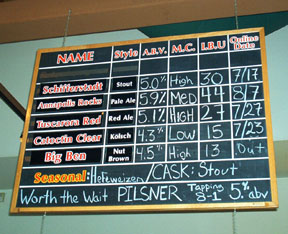 NAME Style A.B.V. M.C. I.B.U Online Date
Schifferstadt Stout 5.0% High 30 7/17
Annapolis Rocks Pale Ale 5.9% MED 44 8/7
Tuscarora Red Red Ale 5.1% HIGH 27 7/27
Catoctin Clear Kölsch 4.3% Low 15 7/23
Big Ben Nut Brown 4.5% High 13 Out
Seasonal: Hefeweizen/CASK: Stout
Worth the Wait PILSNER Tapping 8-1 5% abv